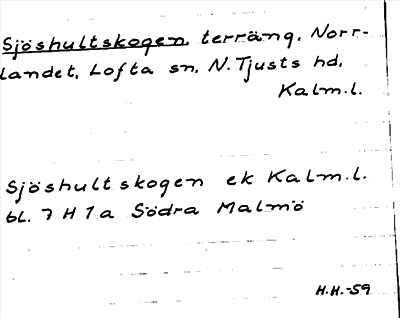 Sjöshultskogen, terräng, Norr-
landet, Lofta sn, N. Tjusts hd,
Kalm.l.
Sjöshultskogen ek Kalm.l.
bl. 7 H 1a Södra Malmö
H.H.-59